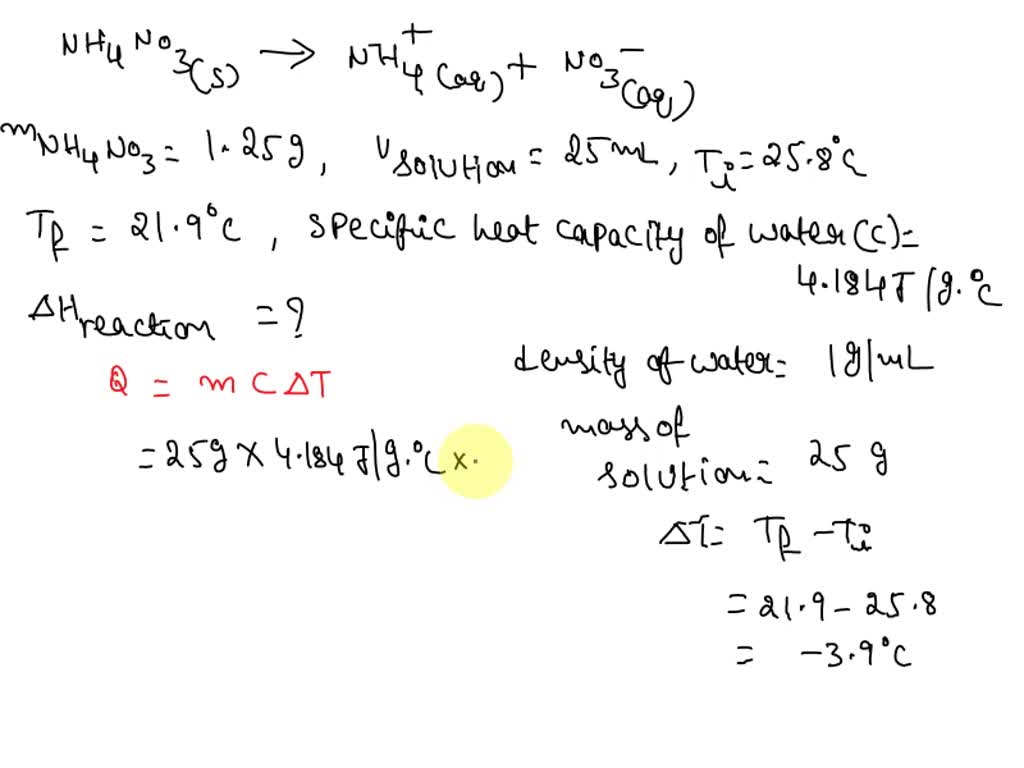 NH4NO3(s) → NH4+(aq) + NO3-(aq)
mNH4NO3 = 1.25g, Vsolution = 25mL, Ti = 25.8°C
Tf = 21.9°C, specific heat capacity of water(c) =
4.184J/g.°C
ΔHreaction = ?
density of water = 1g/mL
Q = mCΔT
mass of
solution = 25 g
= 25g × 4.184J/g.°C ×
ΔT = Tf - Ti
= 21.9 - 25.8
= -3.9°C